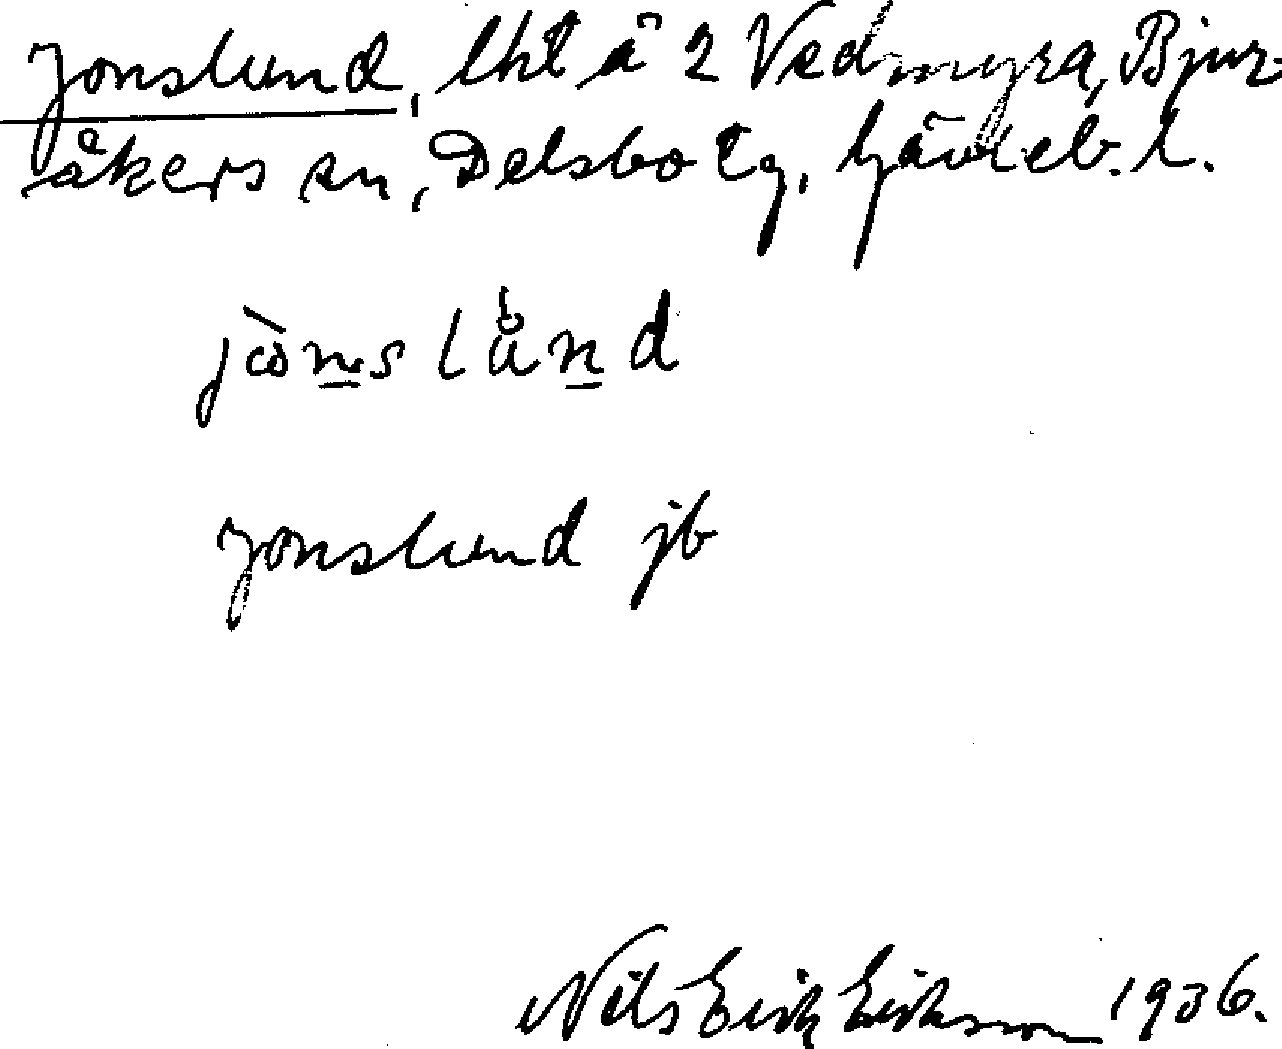 Jonslund, lht å 2 Vedmyra, Bjur-
åkers sn, Delsbo tg, Gävleb. l.
Jonslund jb
Nils Erik Eriksson 1936.